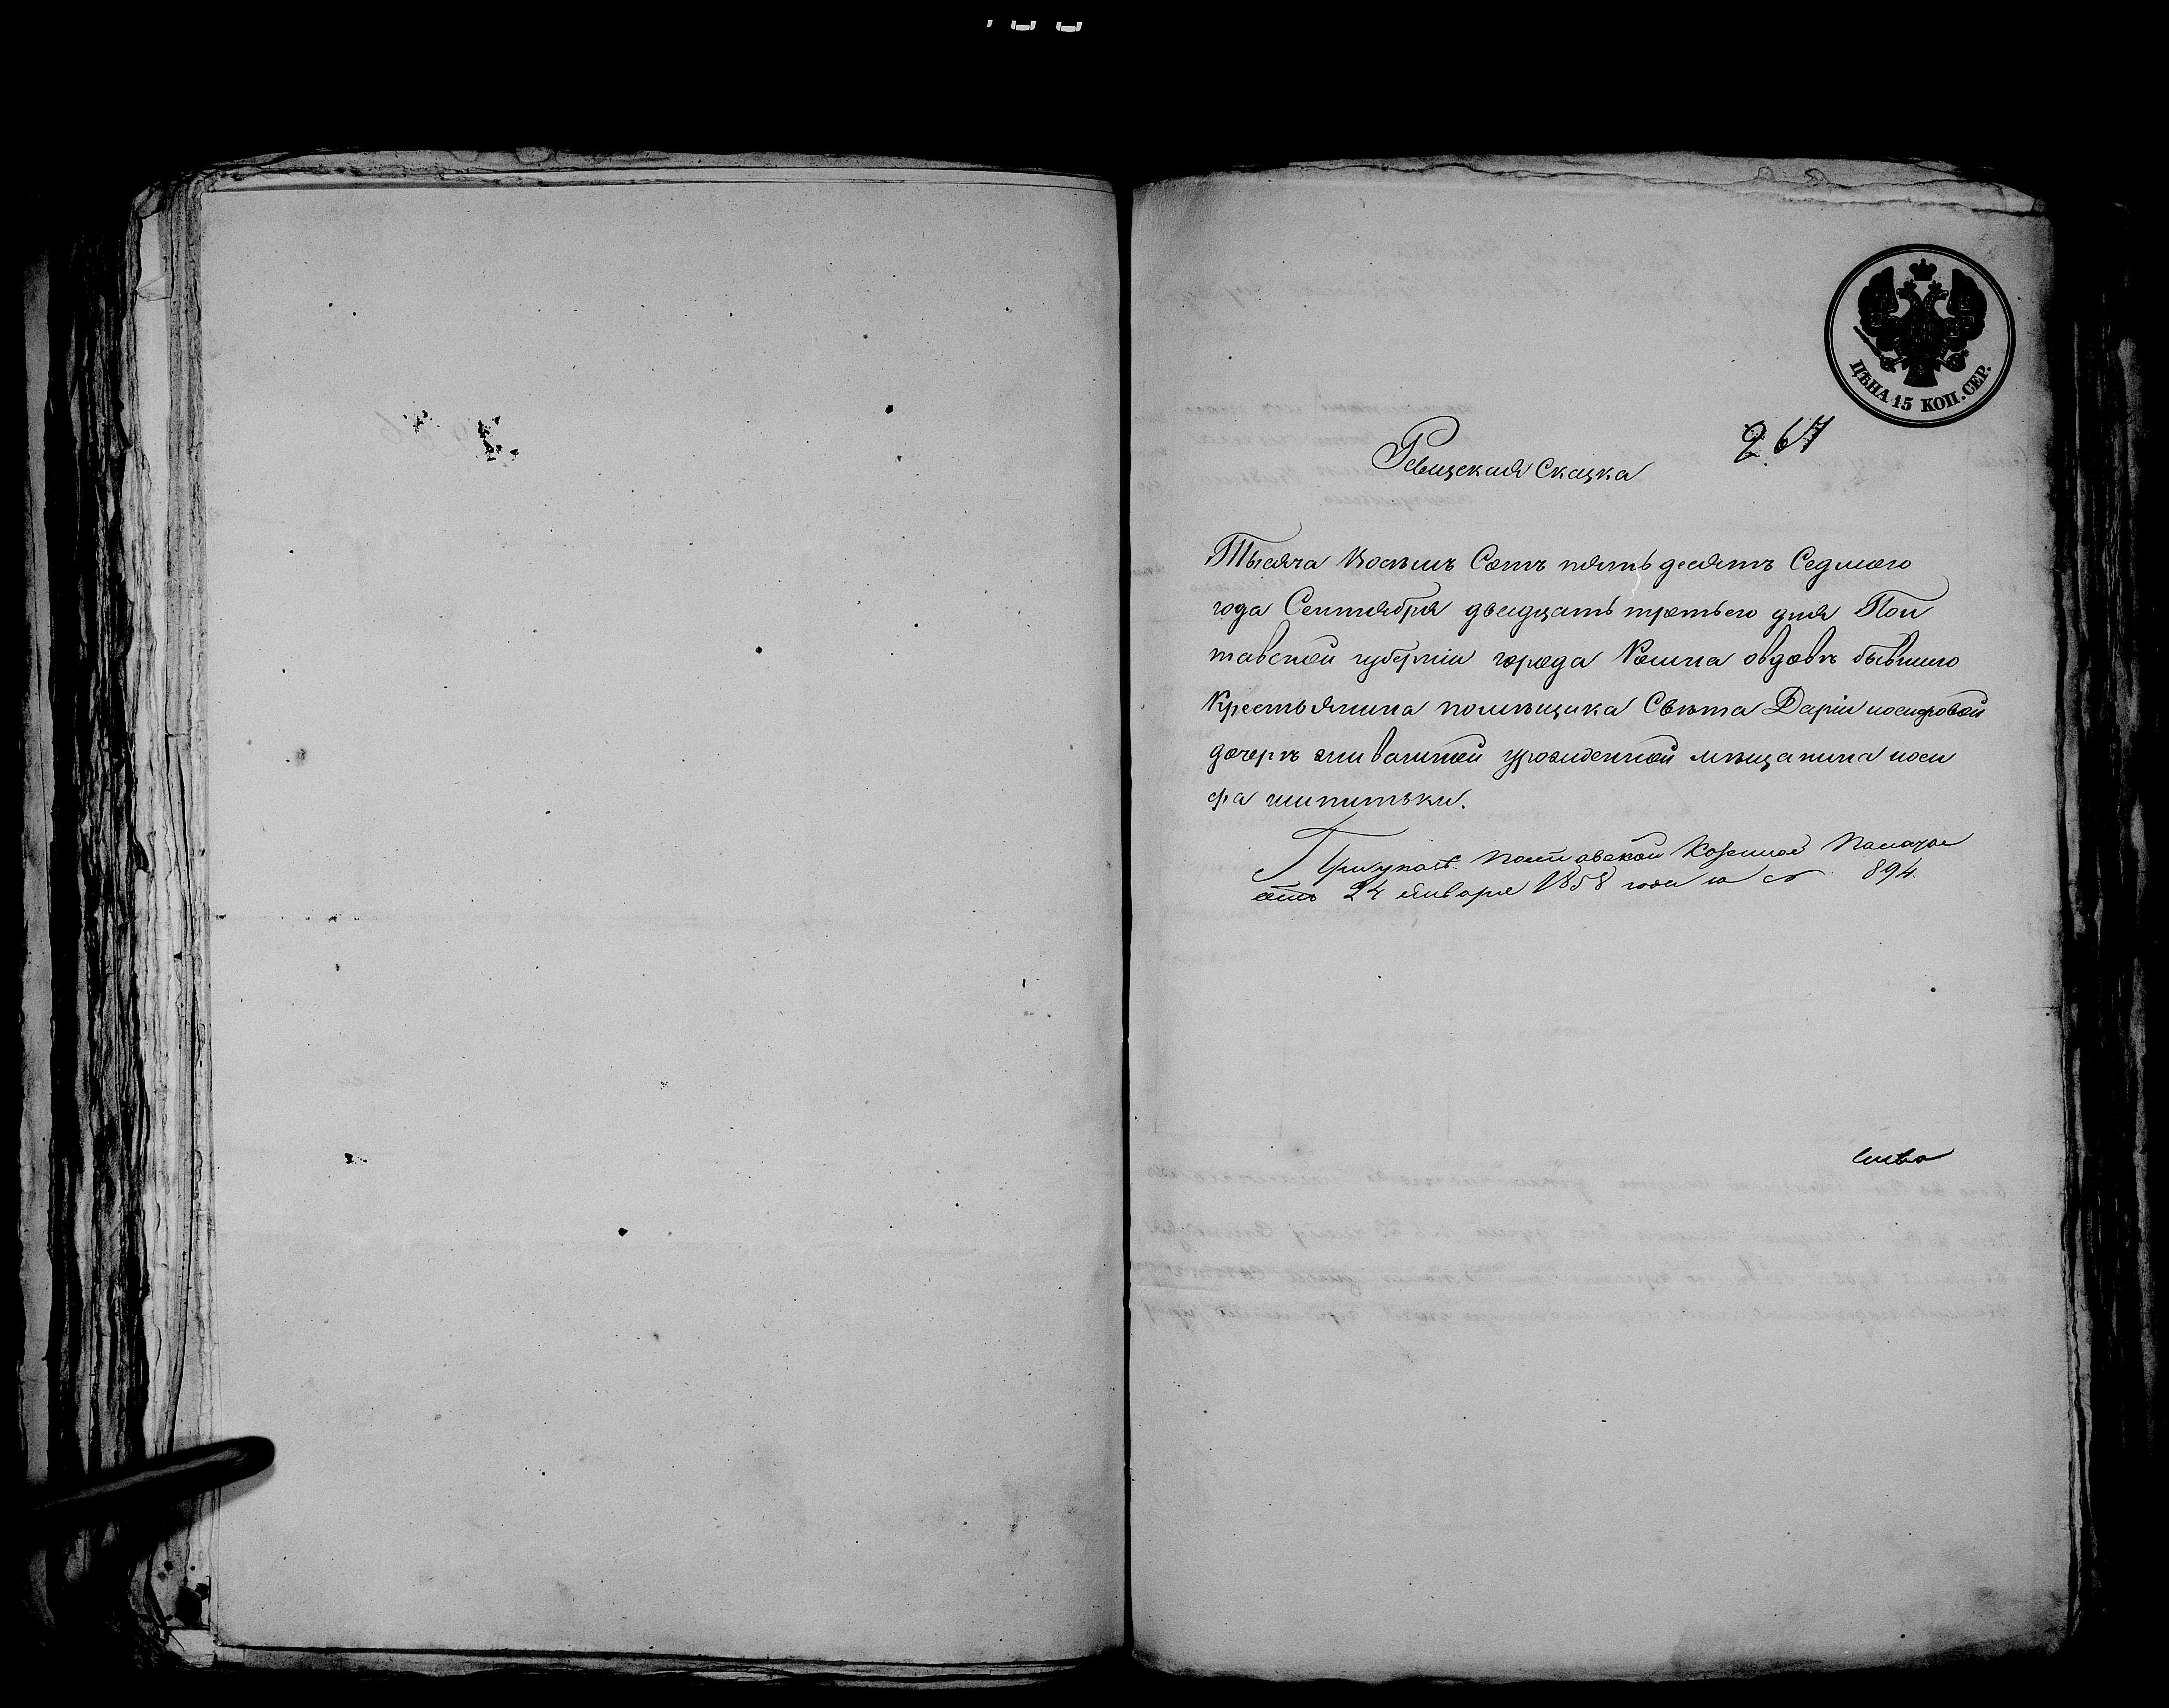 ЦѢНА 15 КОП. СЕР.
267
Ревизская Сказка
Тысяча Восѣмъ Сотъ пятьдесятъ Седмого
года Сентября двадцать третьего дня Пол
тавской губерніи города Ромна овдовѣ бывшого
Крестьянина помѣщика Свѣта Даріи иосифовой
дочерѣ урожденной мѣщанина иоси
фа шпитьки.
При указѣ Полтавской Казенной Палаты
отъ 24 января 1858 года за № 894.